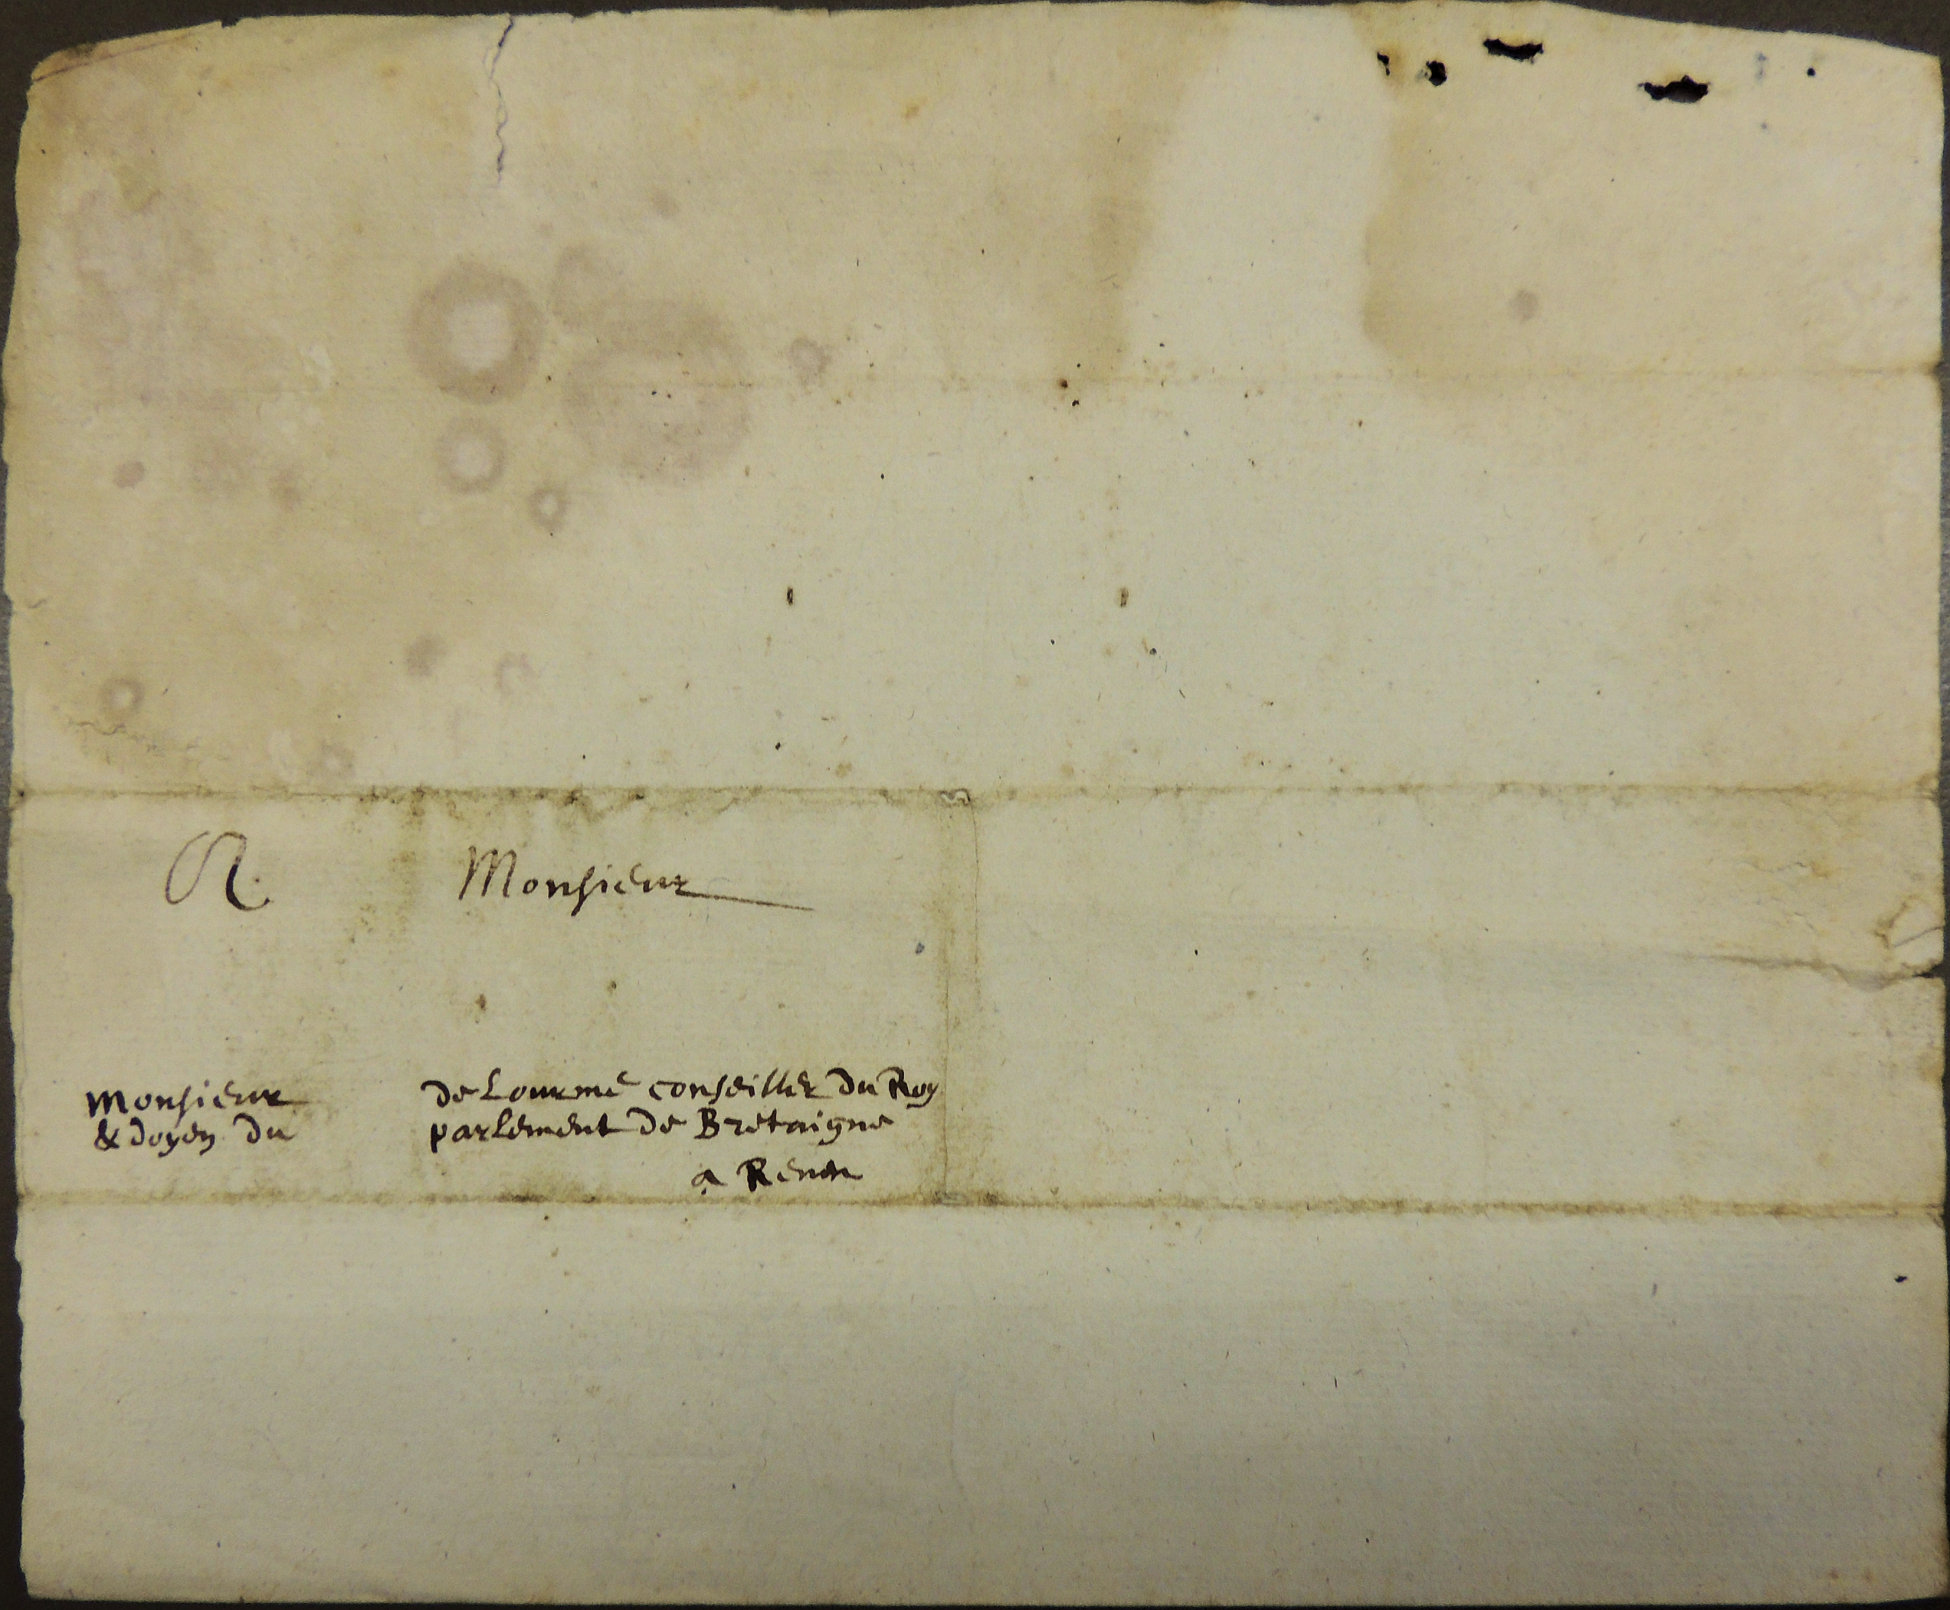 A Monsieur
Monsieur de Lourme conseiller du Roy
& doyen du parlement de Bretaigne
a Renn